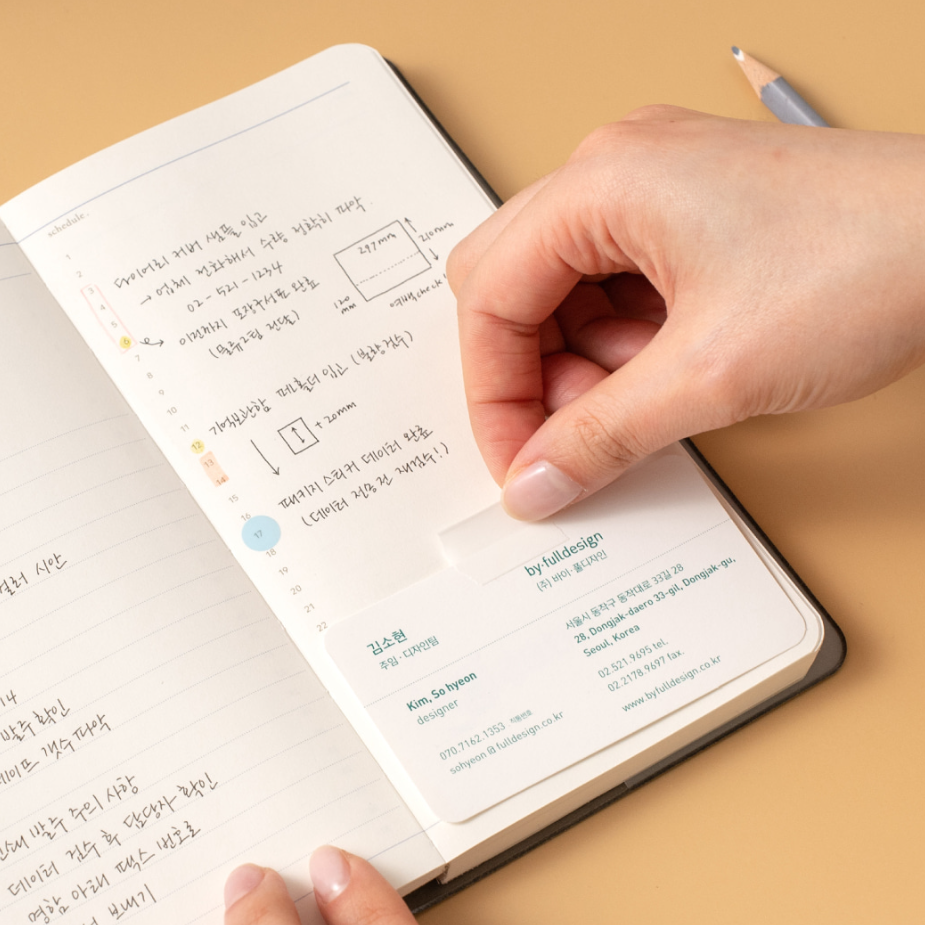 컬러 시안
14
발주 확인
테이프 갯수 파악
인쇄 발주 주의 사항
데이터 검수 후 담당자 확인
명함 아래 팩스 번호로
보내기
schedule.
1
2
3
4
5
6
7
8
9
10
11
12
13
14
15
16
17
18
19
20
21
22
다이어리 커버 샘플 입고
→ 업체 전화해서 수량 정확히 파악
02-521-1234
이전까지 포장구서표 완료
(물류2팀 전달)
297mm
210mm
120mm
여백 check!
기억보관함 미니홀더 입고 (불량 검수)
+20mm
패키지 스티커 데이터 완료
(데이터 전송 전 재검수!)
by·fulldesign
(주) 바이·풀디자인
김소현
주임·디자인팀
서울시 동작구 동작대로 33길 28
28, Dongjak-daero 33-gil, Dongjak-gu,
Seoul, Korea
Kim, So hyeon
designer
02.521.9695 tel.
02.2178.9697 fax.
070.7162.1353 직통번호
sohyeon@fulldesign.co.kr
www.byfulldesign.co.kr